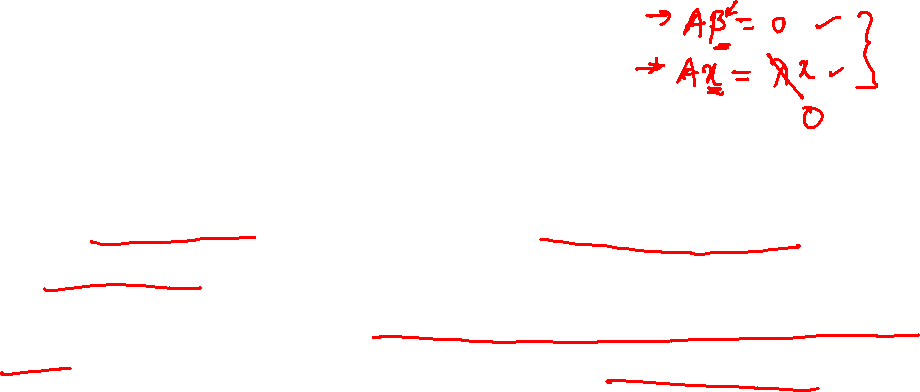 → Aβ = 0 ✓
→ Ax = λx ✓
0